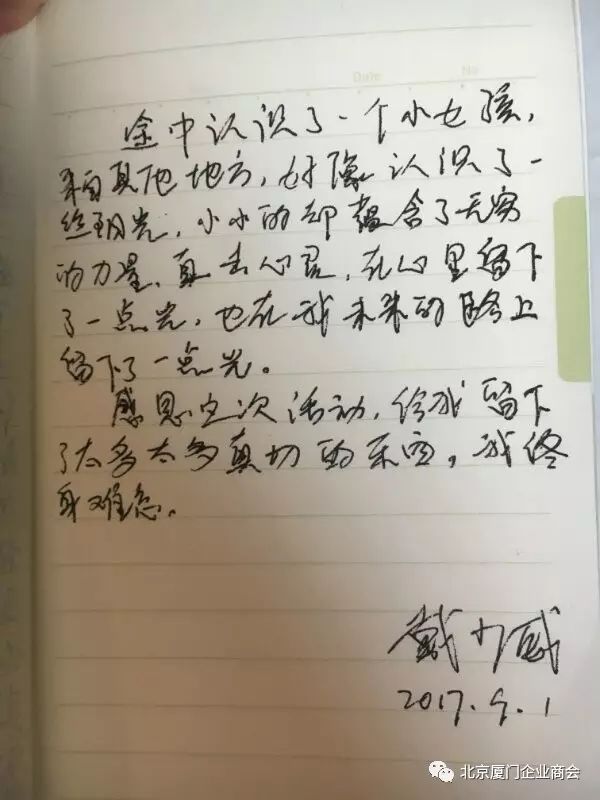 Date
No
途中认识了一个小女孩，
来自其他地方，好像认识了一
丝阳光，小小的却蕴含了无穷
的力量，直击心房，在心里留下
了一点光，也在我未来的路上
留下了一点光。
感恩这次活动，给我留下
了太多太多真切的东西，我终
身难忘。
戴力威
2017.9.1
北京厦门企业商会